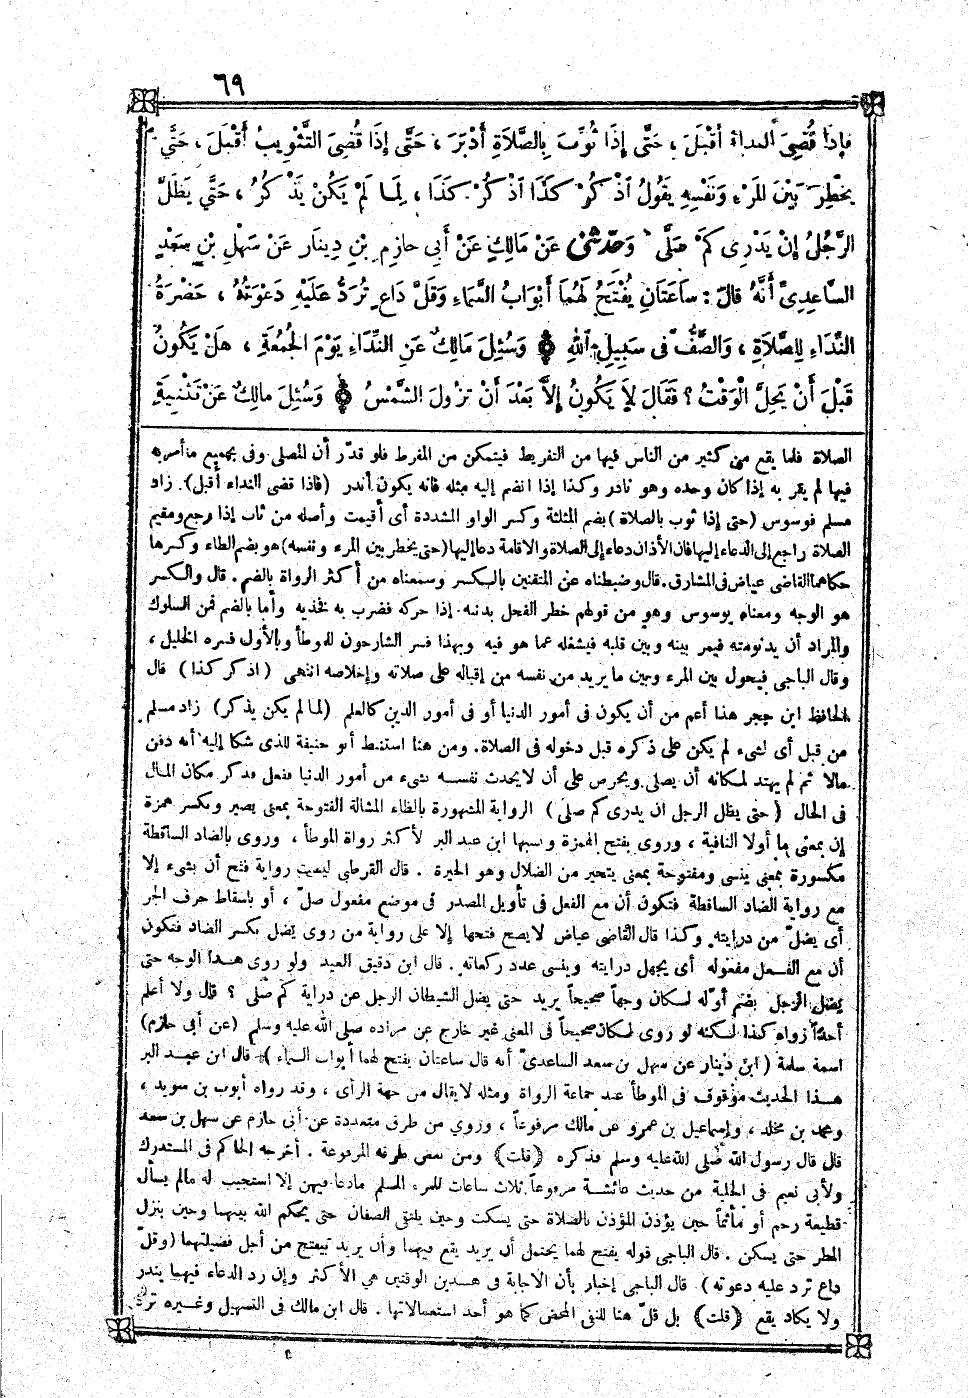 ٦٩
فَإِذَا قُضِىَ النداءُ أَقْبَلَ ، حَتَّى إِذَا ثُوِّبَ بِالصَّلَاةِ أَدْبَرَ ، حَتَّى إِذَا قُضِىَ التَّثْوِيبُ أَقْبَلَ ، حَتَّى
يَخْطِرَ بَيْنَ المَرْءِ وَنَفْسِهِ يَقُولُ اذْكُرْ كَذَا اذْكُرْ كَذَا ، لِمَا لَمْ يَكُنْ يَذْكُرُ ، حَتَّى يَظَلَّ
الرَّجُلُ إِنْ يَدْرِى كَمْ صَلَّى وَحَدَّثَنِى عَنْ مَالِكٍ عَنْ أَبِى حَازِمِ بْنِ دِينَارٍ عَنْ سَهْلِ بْنِ سَعْدٍ
السَّاعِدِىِّ أَنَّهُ قَالَ : سَاعَتَانِ يُفْتَحُ لَهُمَا أَبْوَابُ السَّمَاءِ وَقَلَّ دَاعٍ تُرَدُّ عَلَيْهِ دَعْوَتُهُ ، حَضْرَةُ
النِّدَاءِ لِلصَّلَاةِ ، وَالصَّفُّ فِى سَبِيلِ اللهِ وَسُئِلَ مَالِكٌ عَنِ النِّدَاءِ يَوْمَ الْجُمُعَةِ ، هَلْ يَكُونُ
قَبْلَ أَنْ يَحِلَّ الْوَقْتُ ؟ فَقَالَ لَا يَكُونُ إِلَّا بَعْدَ أَنْ تَزُولَ الشَّمْسُ وَسُئِلَ مَالِكٌ عَنْ تَثْنِيَةِ
الصلاة فلما يقع من كثير من الناس فيها من التفريط فيتمكن من المفرط فلو قدّر أن المصلى وفى بجميع ما أمر به
فيها لم يقر به إذا كان وحده وهو نادر وكذا إذا انضم إليه مثله فانه يكون أندر (فاذا قضى النداء أقبل) زاد
مسلم فوسوس (حتى إذا ثوب بالصلاة) بضم المثلثة وكسر الواو المشددة أى أقيمت وأصله من ثاب إذا رجع ومقيم
الصلاة راجع إلى الدعاء إليها فان الأذان دعاء إلى الصلاة والاقامة دعا إليها (حتى يخطر بين المرء ونفسه) هو بضم الطاء وكسرها
حكاهما القاضى عياض فى المشارق. قال وضبطناه عن المتقنين بالكسر وسمعناه من أكثر الرواة بالضم. قال والكسر
هو الوجه ومعناه يوسوس وهو من قولهم خطر الفحل بذنبه إذا حركه فضرب به فخذيه وأما بالضم فمن السلوك
والمراد أن يدنو منه فيمر بينه وبين قلبه فيشغله عما هو فيه وبهذا فسر الشارحون للموطأ وبالأول فسره الخليل ،
وقال الباجى فيحول بين المرء وبين ما يريد من نفسه من إقباله على صلاته وإخلاصه انتهى (اذكر كذا) قال
الحافظ ابن حجر هذا أعم من أن يكون فى أمور الدنيا أو فى أمور الدين كالعلم (لما لم يكن يذكر) زاد مسلم
من قبل أى لشىء لم يكن على ذكره قبل دخوله فى الصلاة. ومن هنا استنبط أبو حنيفة للذى شكا إليه أنه دفن
مالا ثم لم يهتد لمكانه أن يصلى ويحرص على أن لا يحدث نفسه بشىء من أمور الدنيا ففعل فذكر مكان المال
فى الحال (حتى يظل الرجل ان يدرى كم صلى) الرواية المشهورة بالظاء المشالة المفتوحة بمعنى يصير وبكسر همزة
إن بمعنى ما أولا النافية ، وروى بفتح الهمزة ونسبها ابن عبد البر لأكثر رواة الموطأ ، وروى بالضاد الساقطة
مكسورة بمعنى ينسى ومفتوحة بمعنى يتحير من الضلال وهو الحيرة . قال القرطبى ليست رواية فتح أن بشىء إلا
مع رواية الضاد الساقطة فتكون أن مع الفعل فى تأويل المصدر فى موضع مفعول صلّ ، أو باسقاط حرف الجر
أى يضلّ من درايته وكذا قال القاضى عياض لا يصح فتحها إلا على رواية من روى يضل بكسر الضاد فتكون
أن مع الفعل مفعوله أى يجهل درايته وينسى عدد ركعاته . قال ابن دقيق العيد ولو روى هذا الوجه حتى
يضل الرجل بضم أوله لكان وجهاً صحيحاً يريد حتى يضل الشيطان الرجل عن دراية كم صلى ؟ قال ولا أعلم
أحداً رواه كذا لكنه لو روى لكان صحيحاً فى المعنى غير خارج عن مراده صلى الله عليه وسلم (عن أبى حازم)
اسمه سلمة (ابن دينار عن سهل بن سعد الساعدىّ أنه قال ساعتان يفتح لهما أبواب السماء) قال ابن عبد البر
هذا الحديث موقوف فى الموطأ عند جماعة الرواة ومثله لا يقال من جهة الرأى ، وقد رواه أيوب بن سويد ،
ومحمد بن مخلد ، وإسماعيل بن عمرو عن مالك مرفوعاً ، وروى من طرق متعددة عن أبى حازم عن سهل بن سعد
قال قال رسول الله صلى الله عليه وسلم فذكره (قلت) ومن بعض طرقه المرفوعة . أخرجه الحاكم فى المستدرك
ولأبى نعيم فى الحلية من حديث عائشة مرفوعاً ثلاث ساعات للمرء المسلم مادعا فيهن إلا استجيب له مالم يسأل
قطيعة رحم أو مأثماً حين يؤذن المؤذن بالصلاة حتى يسكت وحين يلتقى الصفان حتى يحكم الله بينهما وحين ينزل
المطر حتى يسكن . قال الباجى قوله يفتح لهما يحتمل أن يريد يقع فيهما وأن يريد تفتح من أجل فضيلتهما (وقلّ
داع ترد عليه دعوته) قال الباجى إخبار بأن الاجابة فى هذين الوقتين هى الأكثر وإن رد الدعاء فيهما يندر
ولا يكاد يقع (قلت) بل قلّ هنا للنفى المحض كما هو أحد استعمالاتها . قال ابن مالك فى التسهيل وغيره ترد